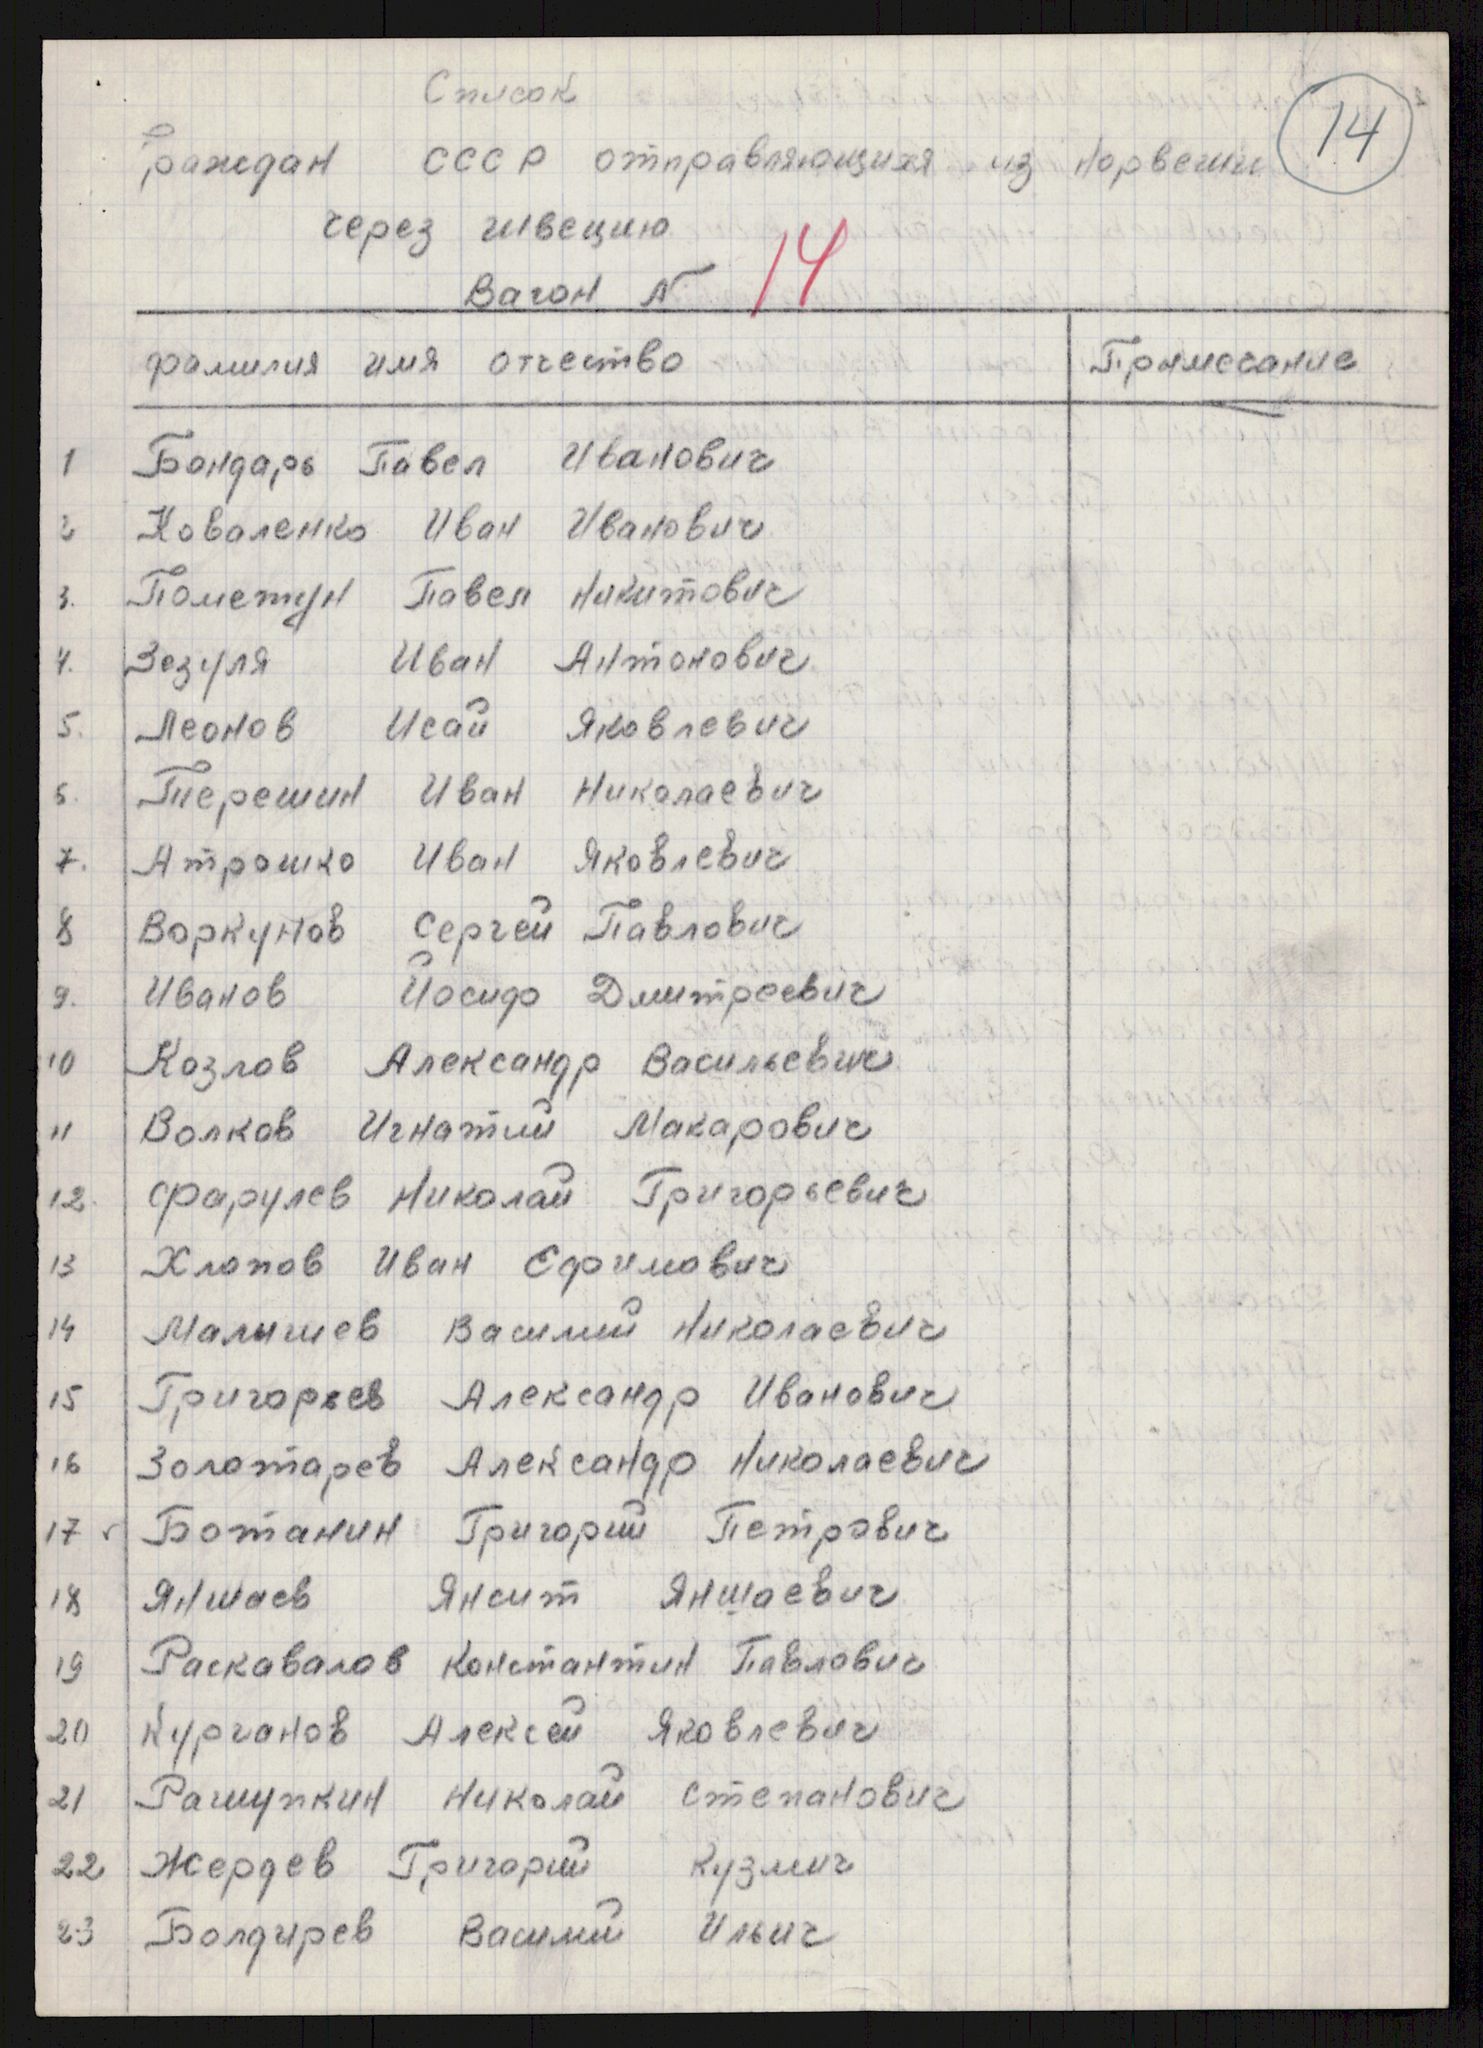 Список
14
Граждан СССР отправляющихя из Норвегии
через Швецию
Вагон N 14
фамилия имя отчество Примечание
1 Бондарь Павел Иванович
2 Коваленко Иван Иванович
3. Пометун Павел Никитович
4. Зезуля Иван Антонович
5. Леонов Исай Яковлевич
6. Терешин Иван Николаевич
7. Атрошко Иван Яковлевич
8 Воркунов Сергей Павлович
9. Иванов Йосиф Дмитреевич
10 Козлов Александр Васильевич
11 Волков Игнатий Макарович
12. Фарулев Николай Григорьевич
13 Хлопов Иван Ефимович
14 Малышев Василий Николаевич
15 Григорьев Александр Иванович
16 Золотарев Александр Николаевич
17 Ботанин Григорий Петрович
18 Яншаев Янсит Яншаевич
19 Раскавалов Константин Павлович
20 Курганов Алексей Яковлевич
21 Рашупкин Николай Степанович
22 Жердев Григорий Кузмич
23 Болдырев Василий Ильич